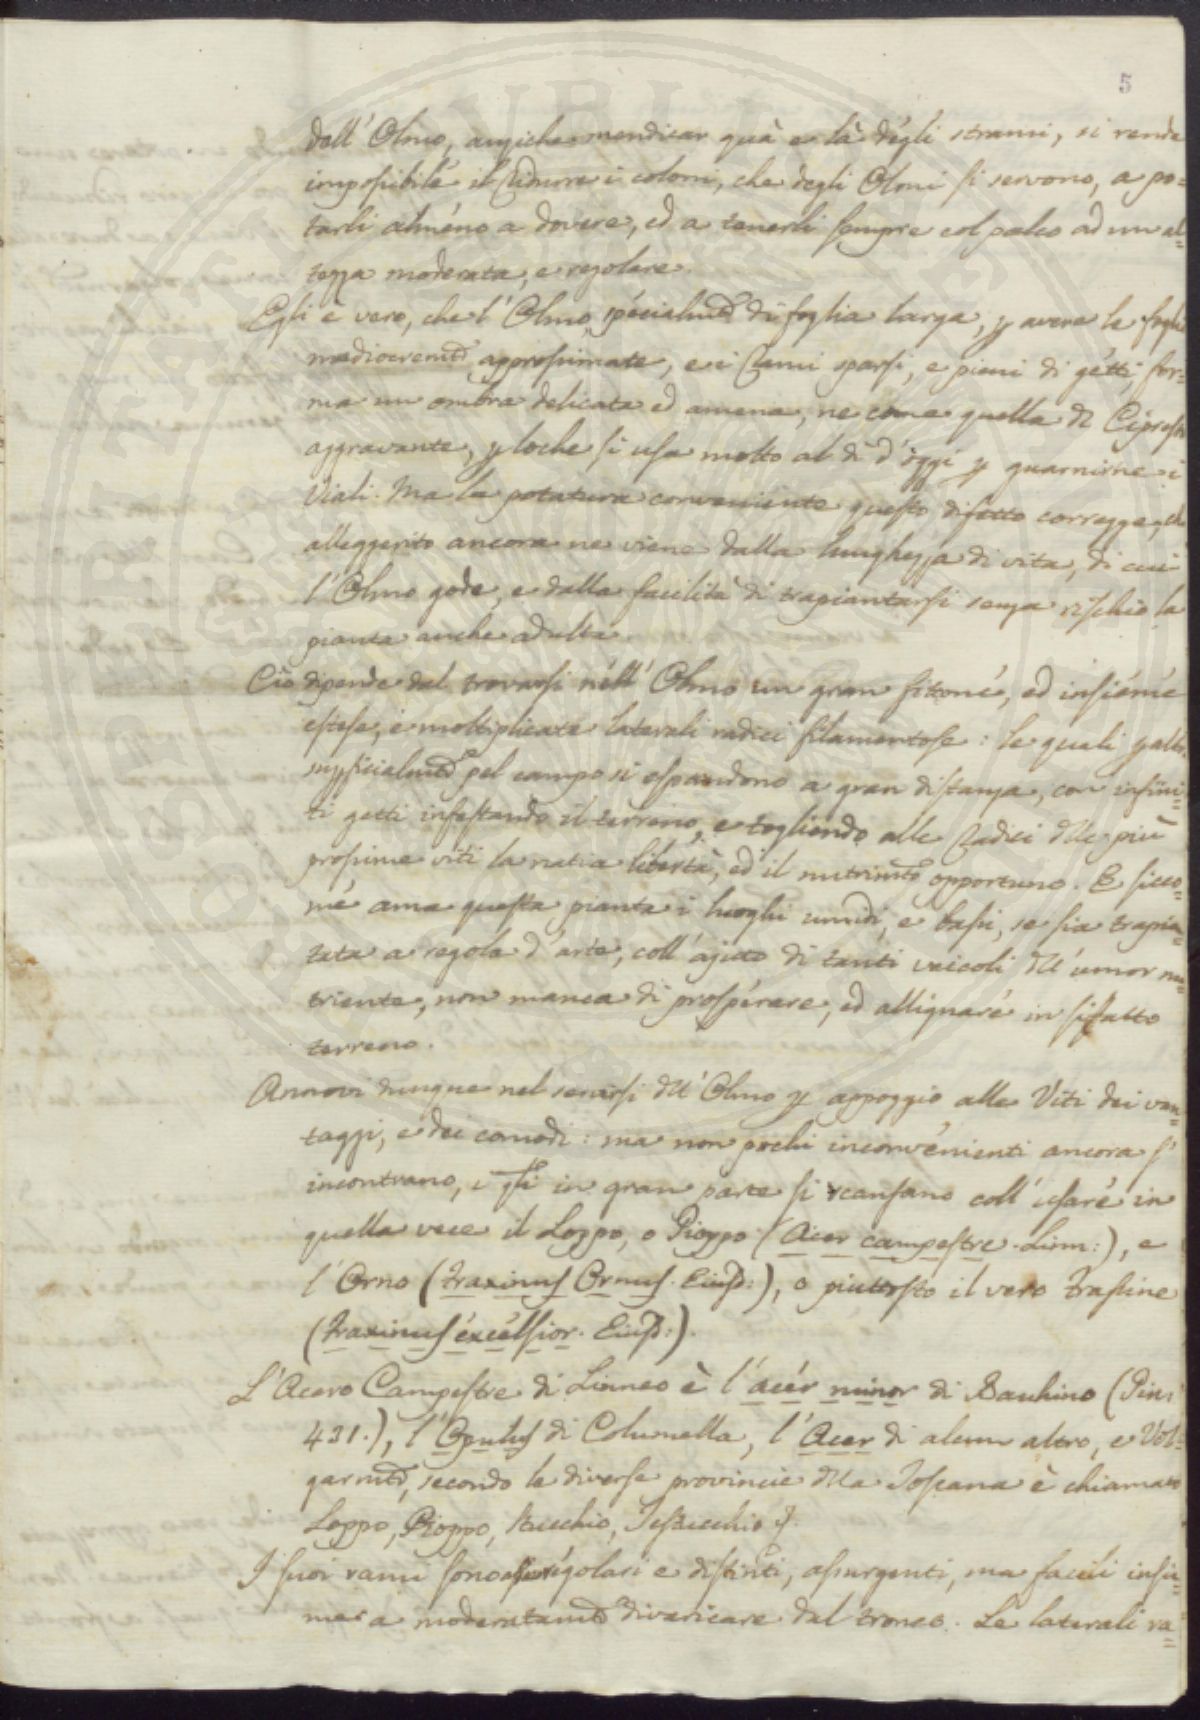 5
dell' Olmo, anziche mendicar quà e là degli strami, si rende
impossibile il ridurre i coloni, che degli Olmi si servono, a po=
tarli almeno a dovere, ed a tenerli sempre col palco ad un al=
tezza moderata, e regolare.
Egli è vero, che l' Olmo, specialmte di foglia larga, p avere le foglie
mediocremte approssimate, e i rami sparsi, e pieni di getti, for=
ma un ombra delicata ed amena, ne come quella di Cipresso
aggravante, p loche si usa molto al dì d' oggi p guarnirne i
Viali. Ma la potatura conveniente questo difetto corregge, che
alleggerito ancora ne viene dalla lunghezza di vita, di cui
l' Olmo gode, e dalla facilità di trapiantarsi senza rischio la
pianta anche adulta.
Ciò dipende dal trovarsi nell' Olmo un gran fitone, ed insieme
estese, e moltiplicate laterali radici filamentose: le quali p altro
superficialmte pel campo si espandono a gran distanza, con infini=
ti getti infestando il terreno, e togliendo alle radici dlle più
prossime viti la natia libertà, ed il nutrimto opportuno. E sicco=
me ama questa pianta i luoghi umidi, e bassi, se sia trapian=
tata a regola d' arte, coll' ajuto di tanti veicoli dll' umor nu=
triente, non manca di prosperare, ed allignare in sifatto
terreno.
Annovi dunque nel servirsi dll' Olmo p appoggio alle Viti dei van=
taggi, e dei comodi: ma non pochi inconvenienti ancora s'
incontrano, i qli in gran parte si scansano coll' usare in
quella vece il Loppo, o Pioppo (Acer campestre. Linn:), e
l' Orno (Fraxinus Ornus. Eiusd:), o piuttosto il vero Frassine
(Fraxinus excelsior. Eiusd:).
L' Acero Campestre di Linneo è l' acer minor di Bauhino (Pin:
431.), l' Opulus di Columella, l' Acer di alcun altro, e Vol=
garmte, secondo le diverse provincie dlla Toscana è chiamato
Loppo, Pioppo, Stucchio, Testucchio &.
I suoi rami sono regolari e distinti, assurgenti, ma facili insie=
me a moderatamte divaricare dal tronco. Le laterali ra=